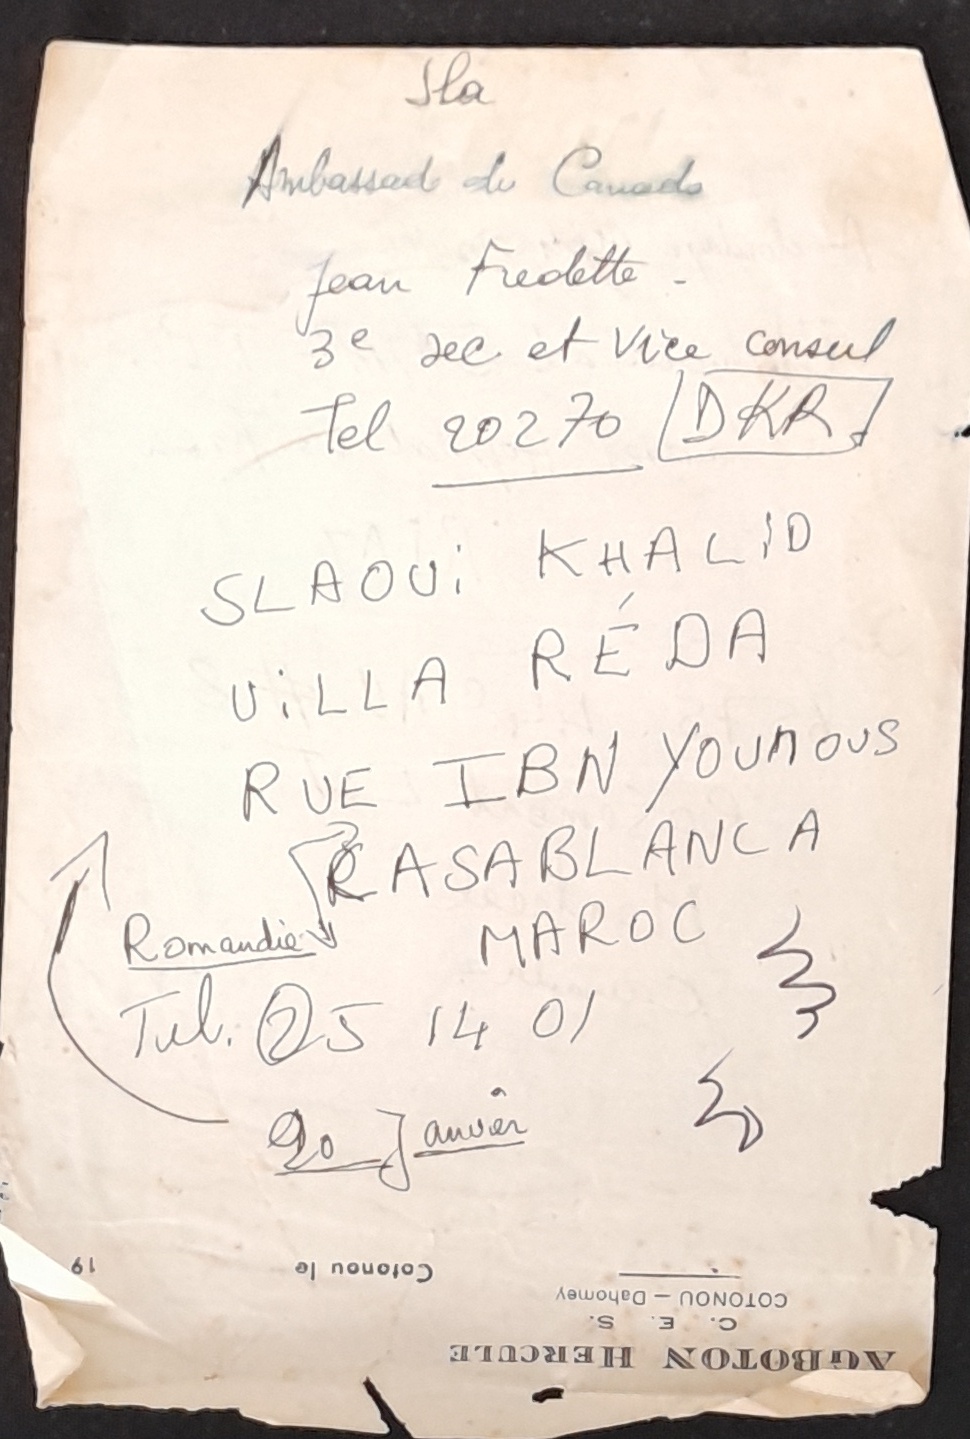 Sla
Ambassade du Canada
Jean Fredette -
3e sec et Vice consul
Tel 20270 DKR
SLAOUi KHALiD
ViLLA RÉDA
RUE IBN YOUNOUS
CASABLANCA
MAROC
Romandie
Tel. 25 14 01
20 Janvier
AGBOTON HERCULE
C. E. S.
COTONOU – Dahomey
Cotonou le 19